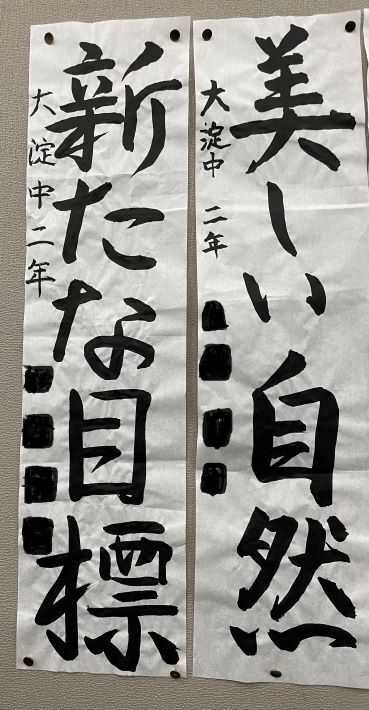 美しい自然
大淀中 二年
新たな目標
大淀中二年